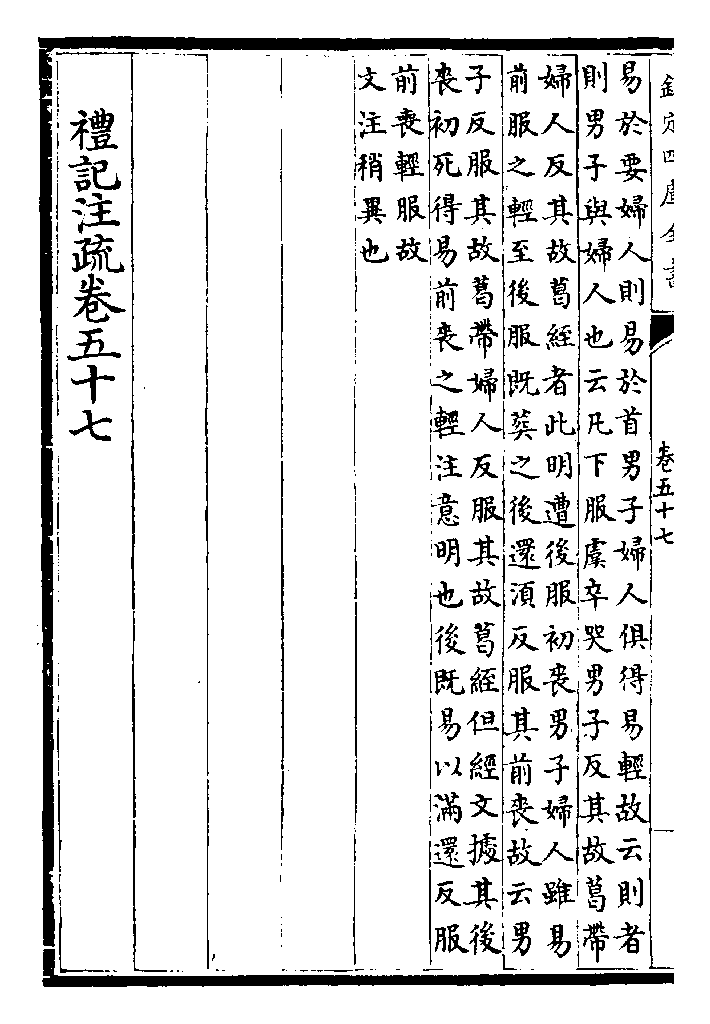 欽定四庫全書
卷五十七
易於要婦人則易於首男子婦人俱得易輕故云則者
則男子與婦人也云凡下服虞卒哭男子反其故葛帶
婦人反其故葛絰者此明遭後服初喪男子婦人雖易
前服之輕至後服既葬之後還須反服其前喪故云男
子反服其故葛帶婦人反服其故葛絰但經文據其後
喪初死得易前喪之輕注意明也後既易以滿還反服
前喪輕服故
文注稍異也
禮記注疏卷五十七